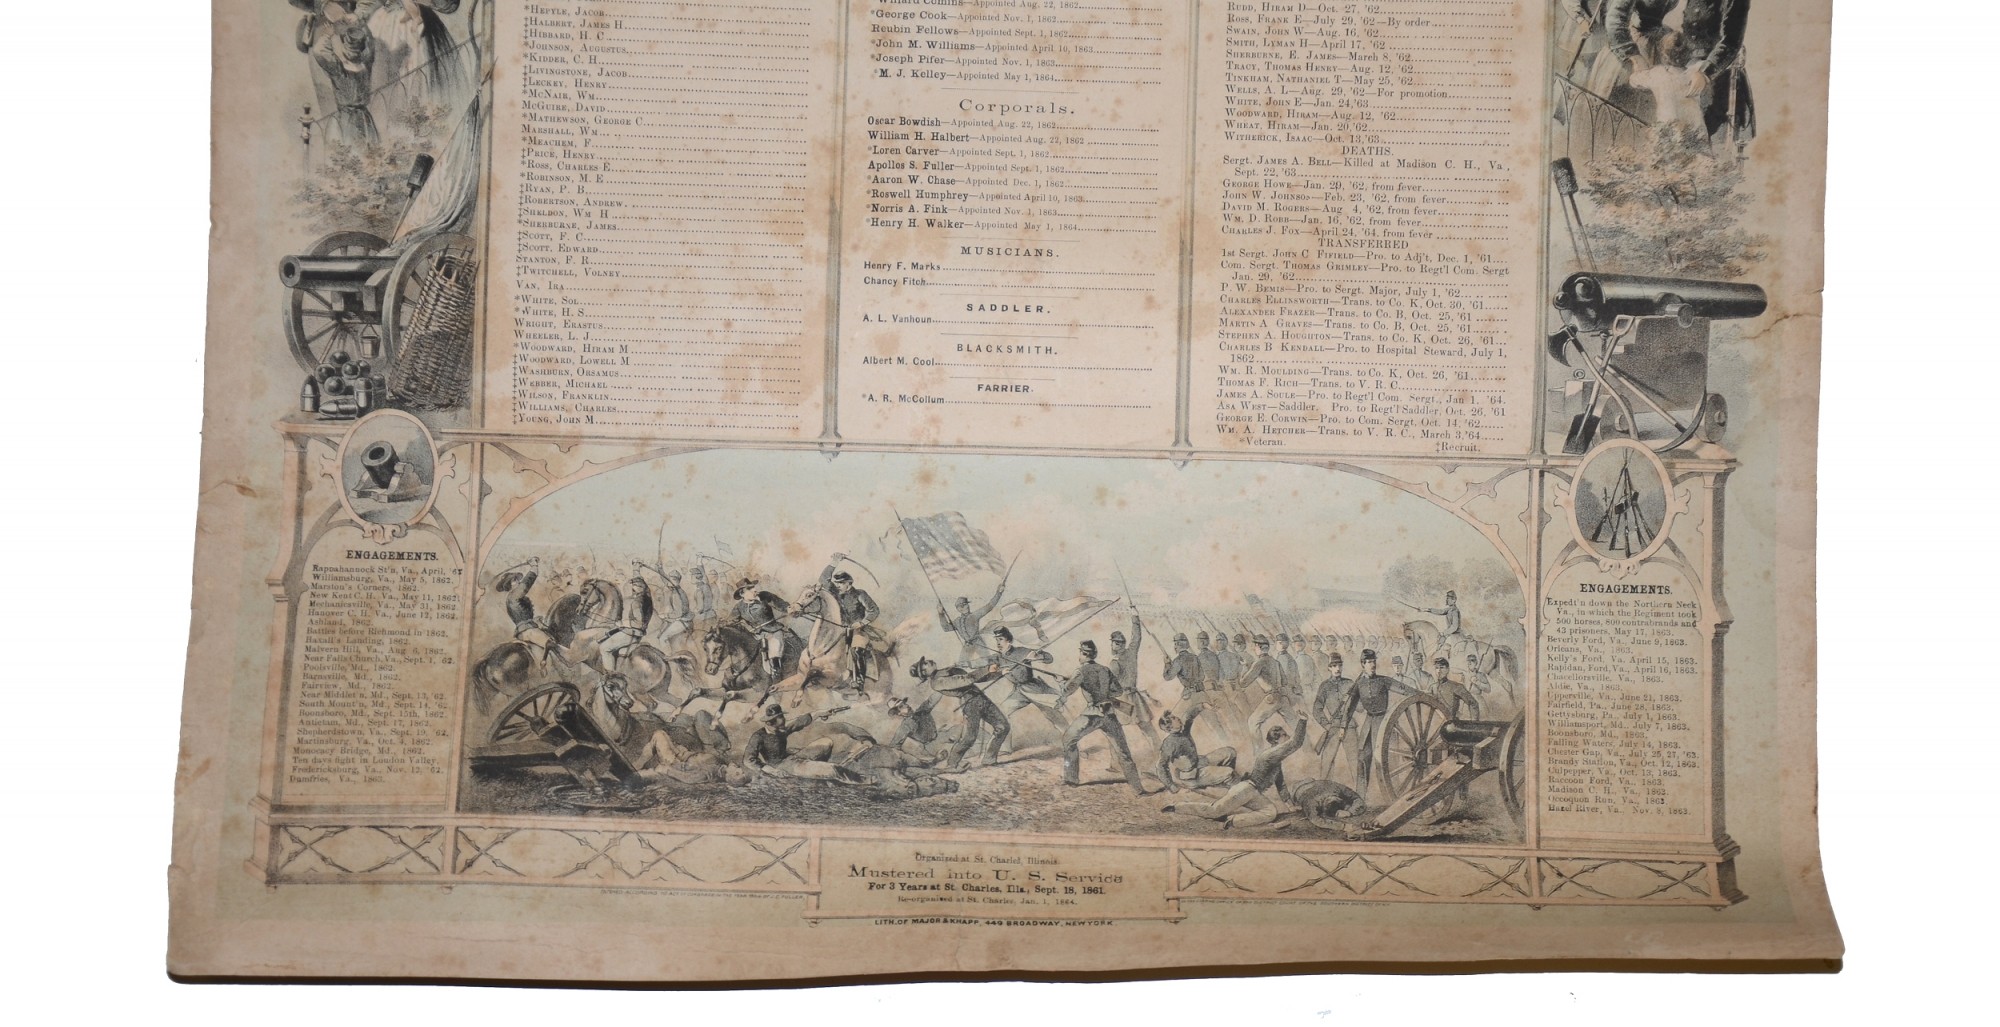 *Hefyle, Jacob
‡Halbert, James H
‡Hibbard, H. C
*Johnson, Augustus
*Kidder, C. H
‡Livingstone, Jacob
‡Leckey, Henry
*McNair, Wm
McGuire, David
*Mathewson, George C
Marshall, Wm
*Meachem, F
‡Price, Henry
*Ross, Charles E
*Robinson, M. E
‡Ryan, P. B
‡Robertson, Andrew
‡Sheldon, Wm H
*Sherburne, James
‡Scott, F. C
‡Scott, Edward
Stanton, F. R
‡Twitchell, Volney
Van, Ira
*White, Sol
*White, H. S
Wright, Erastus
Wheeler, L. J
*Woodward, Hiram M
‡Woodward, Lowell M
‡Washburn, Orsamus
‡Webber, Michael
‡Wilson, Franklin
‡Williams, Charles
‡Young, John M
Willard Comins—Appointed Aug. 22, 1862
*George Cook—Appointed Nov. 1, 1862
Reubin Fellows—Appointed Sept. 1, 1862
*John M. Williams—Appointed April 10, 1863
*Joseph Pifer—Appointed Nov. 1, 1863
*M. J. Kelley—Appointed May 1, 1864
Corporals.
Oscar Bowdish—Appointed Aug. 22, 1862
William H. Halbert—Appointed Aug. 22, 1862
*Loren Carver—Appointed Sept. 1, 1862
Apollos S. Fuller—Appointed Sept. 1, 1862
*Aaron W. Chase—Appointed Dec. 1, 1862
*Roswell Humphrey—Appointed April 10, 1863
*Norris A. Fink—Appointed Nov. 1, 1863
*Henry H. Walker—Appointed May 1, 1864
MUSICIANS.
Henry F. Marks
Chancy Fitch
SADDLER.
A. L. Vanhoun
BLACKSMITH.
Albert M. Cool
FARRIER.
*A. R. McCollum
Rudd, Hiram D—Oct. 27, '62
Ross, Frank E—July 29, '62—By order
Swain, John W—Aug. 16, '62
Smith, Lyman H—April 17, '62
Sherburne, E. James—March 8, '62
Tracy, Thomas Henry—Aug. 12, '62
Tinkham, Nathaniel T—May 25, '62
Wells, A. L—Aug. 29, '62—For promotion
White, John E—Jan. 24,'63
Woodward, Hiram—Aug. 12, '62
Wheat, Hiram—Jan. 20,'62
Witherick, Isaac—Oct. 13,'63
DEATHS.
Sergt. James A. Bell—Killed at Madison C. H., Va.,
Sept. 22, '63
George Howe—Jan. 29, '62, from fever
John W. Johnson—Feb. 23, '62, from fever
David M. Rogers—Aug 4, '62, from fever
Wm. D. Robb—Jan. 16, '62, from fever
Charles J. Fox—April 24, '64, from fever
TRANSFERRED
1st Sergt. John C Fifield—Pro. to Adj't, Dec. 1, '61
Com. Sergt. Thomas Grimley—Pro. to Regt'l Com. Sergt
Jan. 29, '62
P. W. Bemis—Pro. to Sergt. Major, July 1, '62
Charles Ellinsworth—Trans. to Co. K, Oct. 30, '61
Alexander Frazer—Trans. to Co. B, Oct. 25, '61
Martin A Graves—Trans. to Co. B, Oct. 25, '61
Stephen A. Houghton—Trans. to Co. K, Oct. 26, '61
Charles B Kendall—Pro. to Hospital Steward, July 1,
1862
Wm. R. Moulding—Trans. to Co. K, Oct. 26, '61
Thomas F. Rich—Trans. to V. R. C
James A. Soule—Pro. to Regt'l Com. Sergt., Jan 1, '64.
Asa West—Saddler. Pro. to Regt'l Saddler, Oct. 26, '61
George E. Corwin—Pro. to Com. Sergt, Oct. 14, '62
Wm. A. Hetcher—Trans. to V. R. C., March 3,'64
*Veteran. ‡Recruit.
ENGAGEMENTS.
Rappahannock St'n, Va., April, '62
Williamsburg, Va., May 5, 1862.
Marslou's Corners, 1862.
New Kent C. H., Va., May 11, 1862
Mechanicsville, Va., May 31, 1862.
Hanover C. H., Va., June 12, 1862.
Ashland, 1862.
Battles before Richmond in 1862.
Haxall's Landing, 1862.
Malvern Hill, Va., Aug 6, 1862.
Near Falls Church, Va., Sept. 1, '62.
Poolsville, Md., 1862.
Barnsville, Md., 1862.
Fairview, Md., 1862.
Near Middlet'n, Md., Sept. 13, '62.
South Mount'n, Md., Sept. 14, '62.
Boonsboro, Md., Sept. 15th, 1862.
Antietam, Md., Sept. 17, 1862.
Shepherdstown, Va., Sept. 19, '62.
Martinsburg, Va., Oct. 4, 1862.
Monocacy Bridge, Md., 1862.
Ten days fight in Loudon Valley.
Fredericksburg, Va., Nov. 12, '62.
Dumfries, Va., 1863.
ENGAGEMENTS.
Expedt'n down the Northern Neck
Va., in which the Regiment took
500 horses, 800 contrabrands and
43 prisoners, May 17, 1863.
Beverly Ford, Va., June 9, 1863.
Orleans, Va., 1863.
Kelly's Ford, Va. April 15, 1863.
Rapidan, Ford, Va., April 16, 1863.
Chacellorsville, Va., 1863.
Aldie, Va., 1863.
Upperville, Va., June 21, 1863.
Fairfield, Pa., June 28, 1863.
Gettysburg, Pa., July 1, 1863.
Williamsport, Md., July 7, 1863.
Boonsboro, Md., 1863.
Falling Waters, July 14, 1863.
Chester Gap, Va., July 25, 27, '63.
Brandy Station, Va., Oct. 12, 1863.
Culpepper, Va., Oct. 13, 1863.
Raccoon Ford, Va., 1863.
Madison C. H., Va., 1863.
Occoquon Run, Va., 1863
Hazel River, Va., Nov. 8, 1863.
Organized at St. Charles, Illinois.
Mustered into U. S. Service
For 3 Years at St. Charles, Ills., Sept. 18, 1861.
Re-organized at St. Charles, Jan. 1, 1864.
LITH. OF MAJOR & KNAPP, 449 BROADWAY, NEW YORK